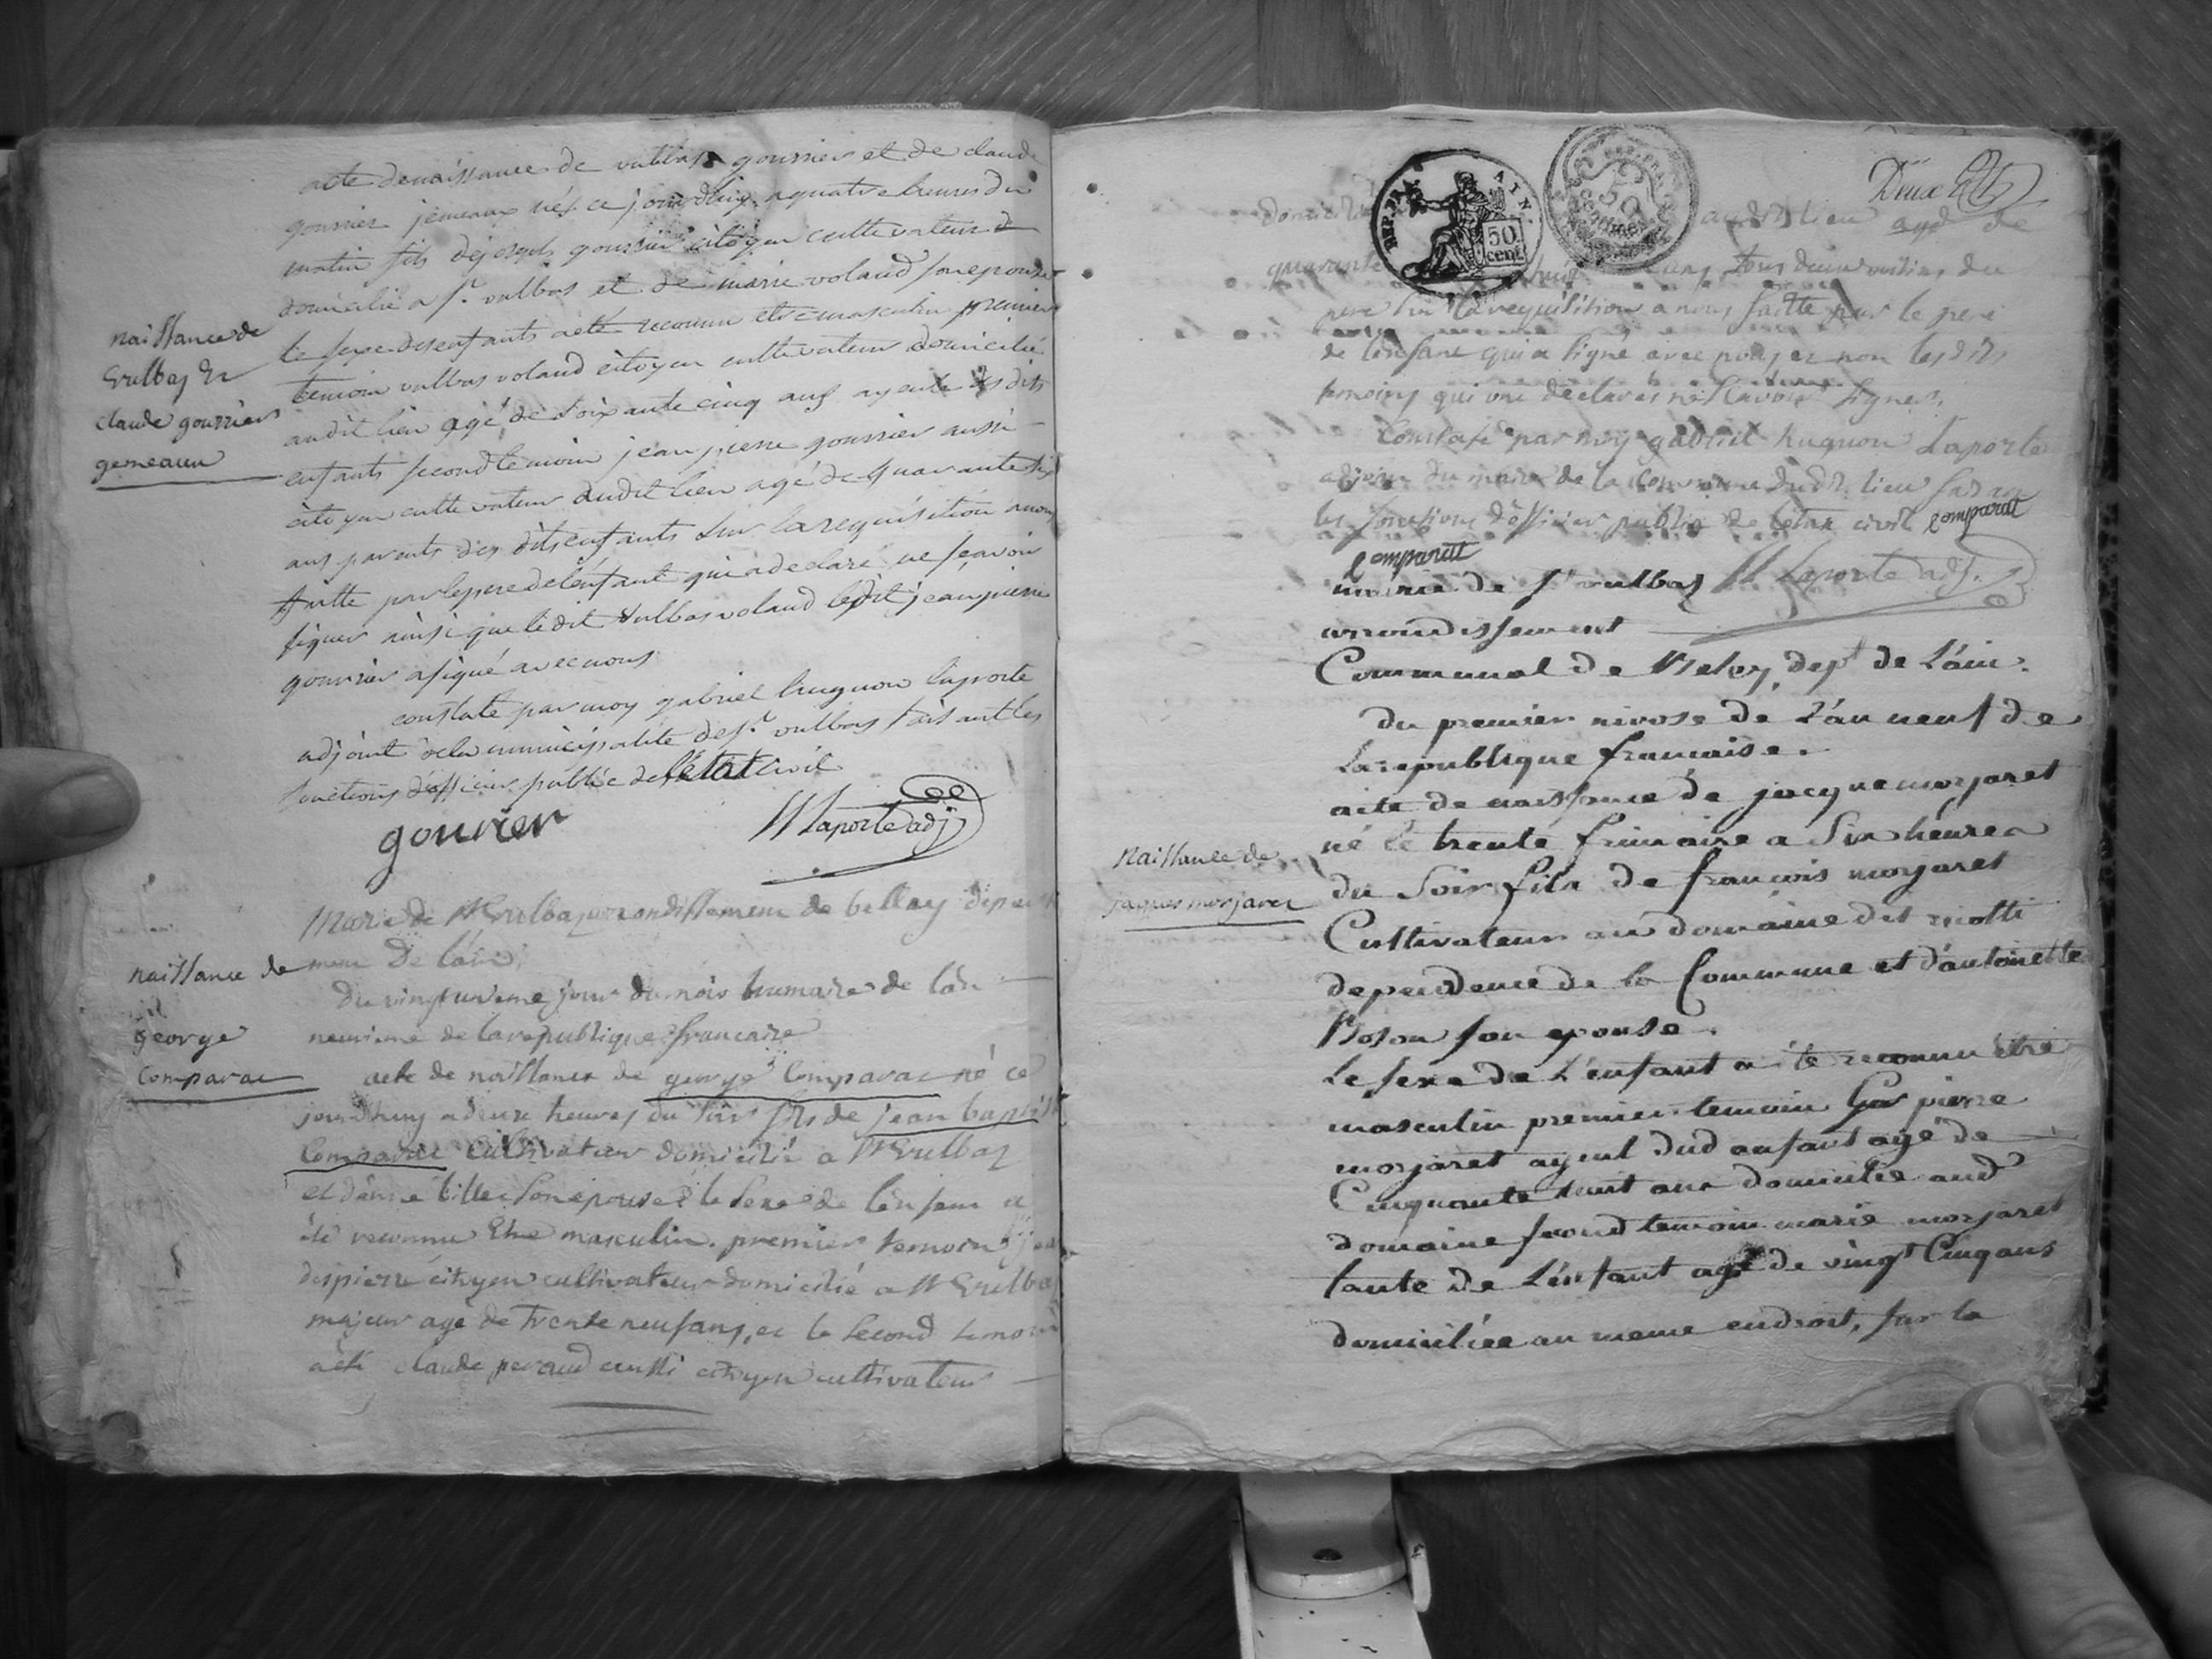 acte de naissance de vulbas gourrier et de claude
gourrier jemeaux nés ce jourdhuy a quatre heures du
matin fils de joseph gourrier citoyen cultivateur
domicilié a st vulbas et de marie volaud son epouse
le sexe des enfants a été reconnu etre masculin premier
temoin vulbas volaud citoyen cultivateur domicilié
audit lieu agé de soixante cinq ans ayeul des dits
enfants second temoin jean pierre gourrier aussi
citoyen cultivateur audit lieu agé de quarante six
ans parents des dits enfants sur la requisition a nous
faitte par le pere de lenfant qui a declaré ne sçavoir
signer ainsi que le dit vulbas volaud ledit jean pierre
gourrier a signé avec nous
constaté par moy gabriel hugnon laporte
adjoint de la municipalité de st vulbas faisant les
fonctions dofficier public de létat civil
gourier
Laporte adj
naissance de
vulbas et
claude gourrier
gemeaux
Marie de St vulbas arrondissement de bellay departe
ment de lain
du vingt unieme jour du mois brumaire de lan
neuvieme de la republique francaise
acte de naissance de george Comparat né ce
jourdhuy a deux heures du soir fils de jean baptiste
Comparat Cultivateur domicilié a St vulbas
et son epouse le sexe de lenfant a
été reconnu Etre masculin. premier temoin
despierre citoyen cultivateur domicilié a St vulbas
majeur agé de trente neuf ans, et le second temoin
a été claude peraud aussi citoyen cultivateur
naissance de
george
Comparat
Deux
domicilié audit lieu agé de
quarante huit ans tous deux voisins du
pere sur la requisition a nous faitte par le pere
de lenfant qui a signé avec nous et non lesdits
temoins qui ont declarés ne scavoir signer.
Constaté par moy gabriel hugnon Laporte
adjoint du maire de la Commune dudit lieu faisant
les fonctions dofficier public de letat civil Comparat
Comparat
mairie de St vulbas Laporte adj.
arrondissement
Communal de Beley, dept de L'ain.
du premier nivose de l'an neuf de
La republique francaise.
acte de naissance de jacque morjaret
né le trente frimaire a Six heures
du Soir fils de francois morjaret
Cultivateur au domaine des
dependence de la Commune et d'antoinette
son epouse.
Le sexe de L'enfant a été reconnu être
masculin premier temoin pierre
morjaret ayeul dud enfant agé de
Cinquante huit ans domicilié aud
domaine second temoin marie morjaret
tante de L'enfant agé de vingt Cinq ans
domiciliée au meme endroit, sur la
Naissance de
jaques morjaret
REP. FRA.
50
cent